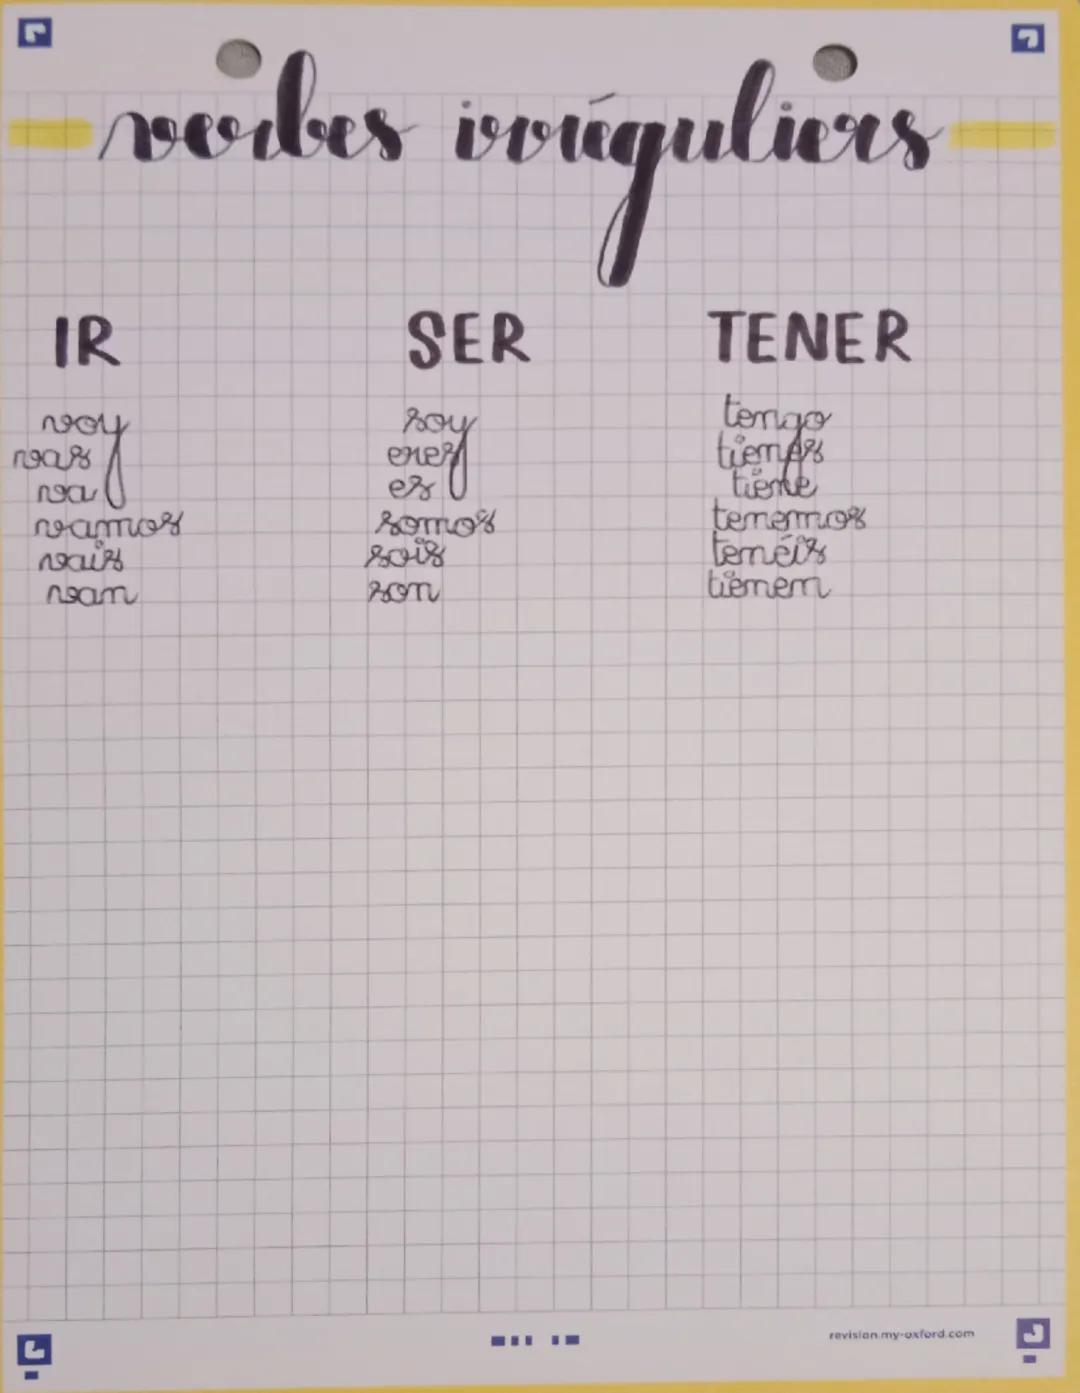 verbes irréguliers
IR SER TENER
voy soy tengo
vas eres tienes
va es tiene
vamos somos tenemos
vais sois tenéis
van son tienen
revision.my-oxford.com